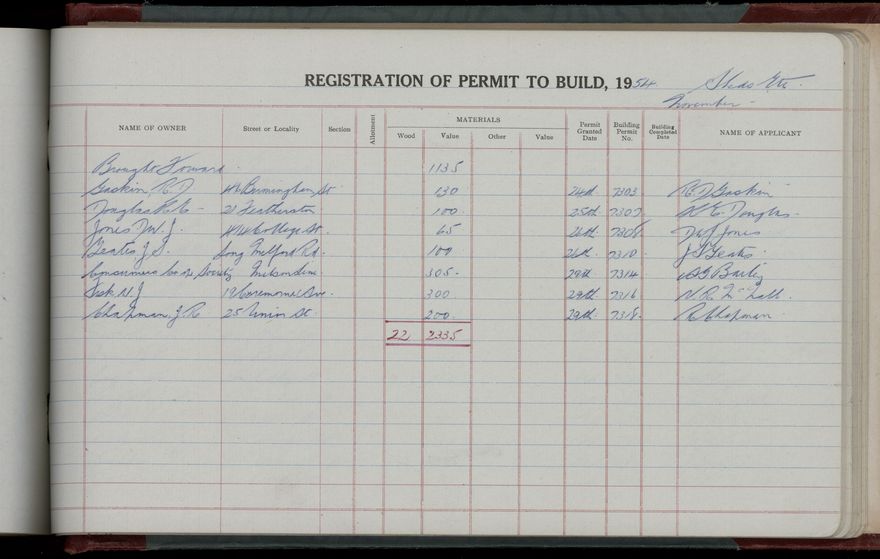 REGISTRATION OF PERMIT TO BUILD, 1954 Sheds Etc.
November
NAME OF OWNER Street or Locality Section Allotment MATERIALS Permit Granted Date Building Permit No. Building Completed Date NAME OF APPLICANT
Wood Value Other Value
Brought Forward 1135
Gaskin, R. D. Birmingham St 130 24th 7303 R. D. Gaskin
Douglas 21 Featherston 100 25th 7307 Douglas
Jones D.W.J. College St. 65 26th 7308 DWJ Jones
Geatis J. S. Long Melford Rd. 100 26th 7310 J S Geatis
Consumers Co-op Society Milson Line 305 29th 7314 Bailey
N. J 19 Ave. 300 29th 7316
Chapman, J. R 25 Union St. 200 29th 7318 R Chapman
22 2335